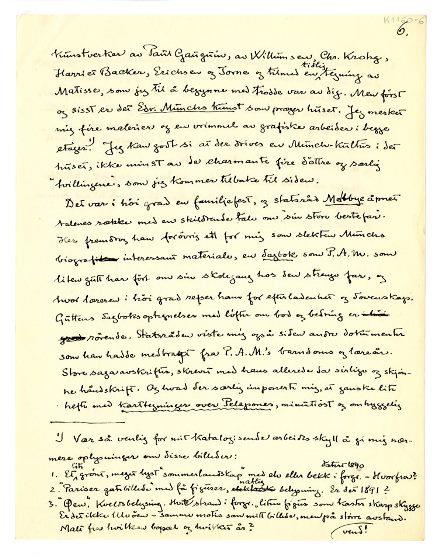 K1160-6
6.
kunstverker av Paul Gauguin, av Willumsen, Chr. Krohg,
Harriet Backer, Erichsen og Torne og tilmed en tidlig tegning av
Matisse, som jeg til å begynne med trodde var av dig. Men først
og sisst er det Edv. Munchs kunst som præger huset. Jeg merket
mig fire malerier og en vrimmel av grafiske arbeider i begge
etager.¹) Jeg kan godt si at der drives en Munch-kultus i det
huset, ikke minst av de charmante fire døttre og særlig
"tvillingene", som jeg kommer tilbake til siden.
Det var i höi grad en familiefest, og statsråd Motbye åpnet
talenes række med en skildrende tale om sin store bestefar.
frembrog han forövrig et for mig som slekten Munchs
biograf interessant materiale, en dagbok som P.A.M. som
liten gutt har fört om sin skolegang hos den strenge far, og
hvor læreren i höi grad refser ham for efterladenhet og dovenskap.
Guttens dagboksoptegnelser med löfter om bod og bedring er
rörende. Statsråden viste mig også siden andre dokumenter
som han hadde medbragt fra P.A.M.'s barndoms og læreår.
Store sagaavskrifter, skrevet med hans allerede da sirlige og skjön-
ne håndskrift. Og hvad der særlig imponerte mig, et ganske lite
hefte med karttegninger over Pelopones, minutiöst og omhyggelig
¹) Vær så venlig for mit katalogiserende arbeides skyll å gi mig nær-
mere oplysninger om disse billeder:
1. Et lite, grönt, meget lyst "sommerlandskap" med elv eller bekk i forgr. – Hvorfra?
datert 1890
2. "Pariser gatebillede" med få figurer, natlig belysning. Er det 1891?
3. "Öen", Kveldsbelysning. Hvit strand i forgr., liten figur som kaster skarp skygge.
Er det ikke Ulvöen – samme motiv som mitt billede, men på större avstand.
Malt fra hvilken bopæl og hvilket år?
vend!